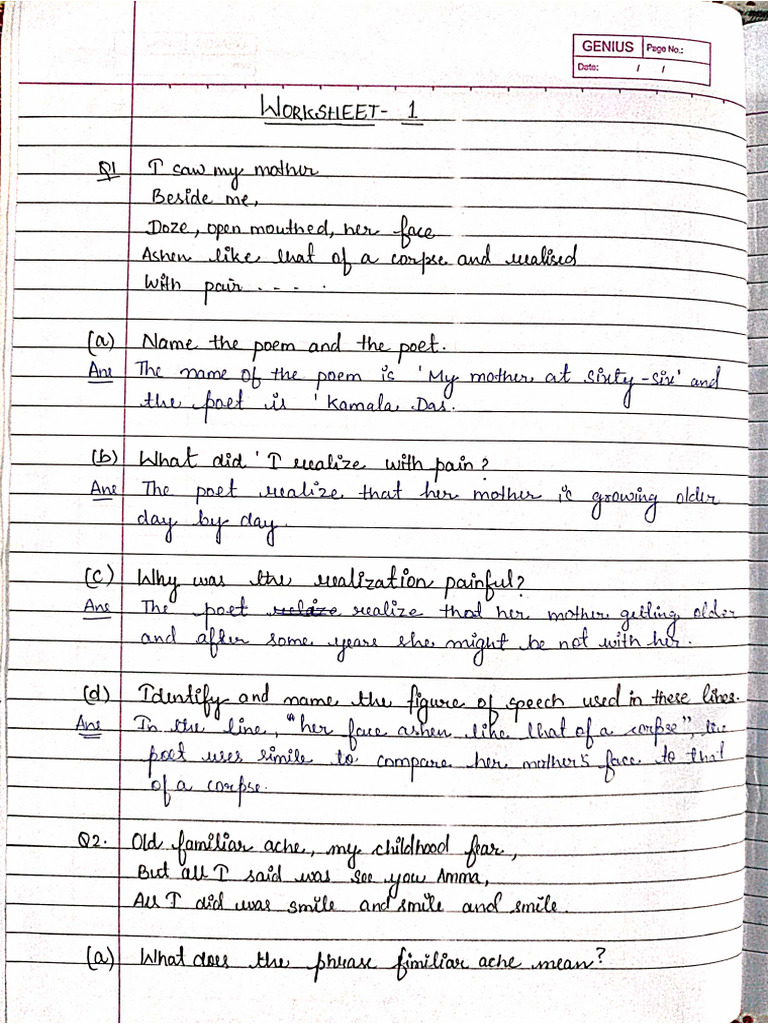 GENIUS Page No.:
Date: / /
WORKSHEET- 1
Q1 I saw my mother
Beside me,
Doze, open mouthed, her face
Ashen like that of a corpse and realised
With pair . - - .
(a) Name the poem and the poet.
Ans The name of the poem is 'My mother at sixty-six' and
the poet is 'Kamala Das.
(b) What did 'I realize with pain?
Ans The poet realize that her mother is growing older
day by day.
(c) Why was the realization painful?
Ans The poet relaize realize that her mother getting older
and after some years she might be not with her.
(d) Identify and name the figure of speech used in these lines.
Ans In the line, "her face ashen like that of a corpse", the
poet uses simile to compare her mother's face to that
of a corpse.
Q2. Old familiar ache, my childhood fear,
But all I said was see you Amma,
All I did was smile and smile and smile.
(a) What does the phrase fimiliar ache mean?